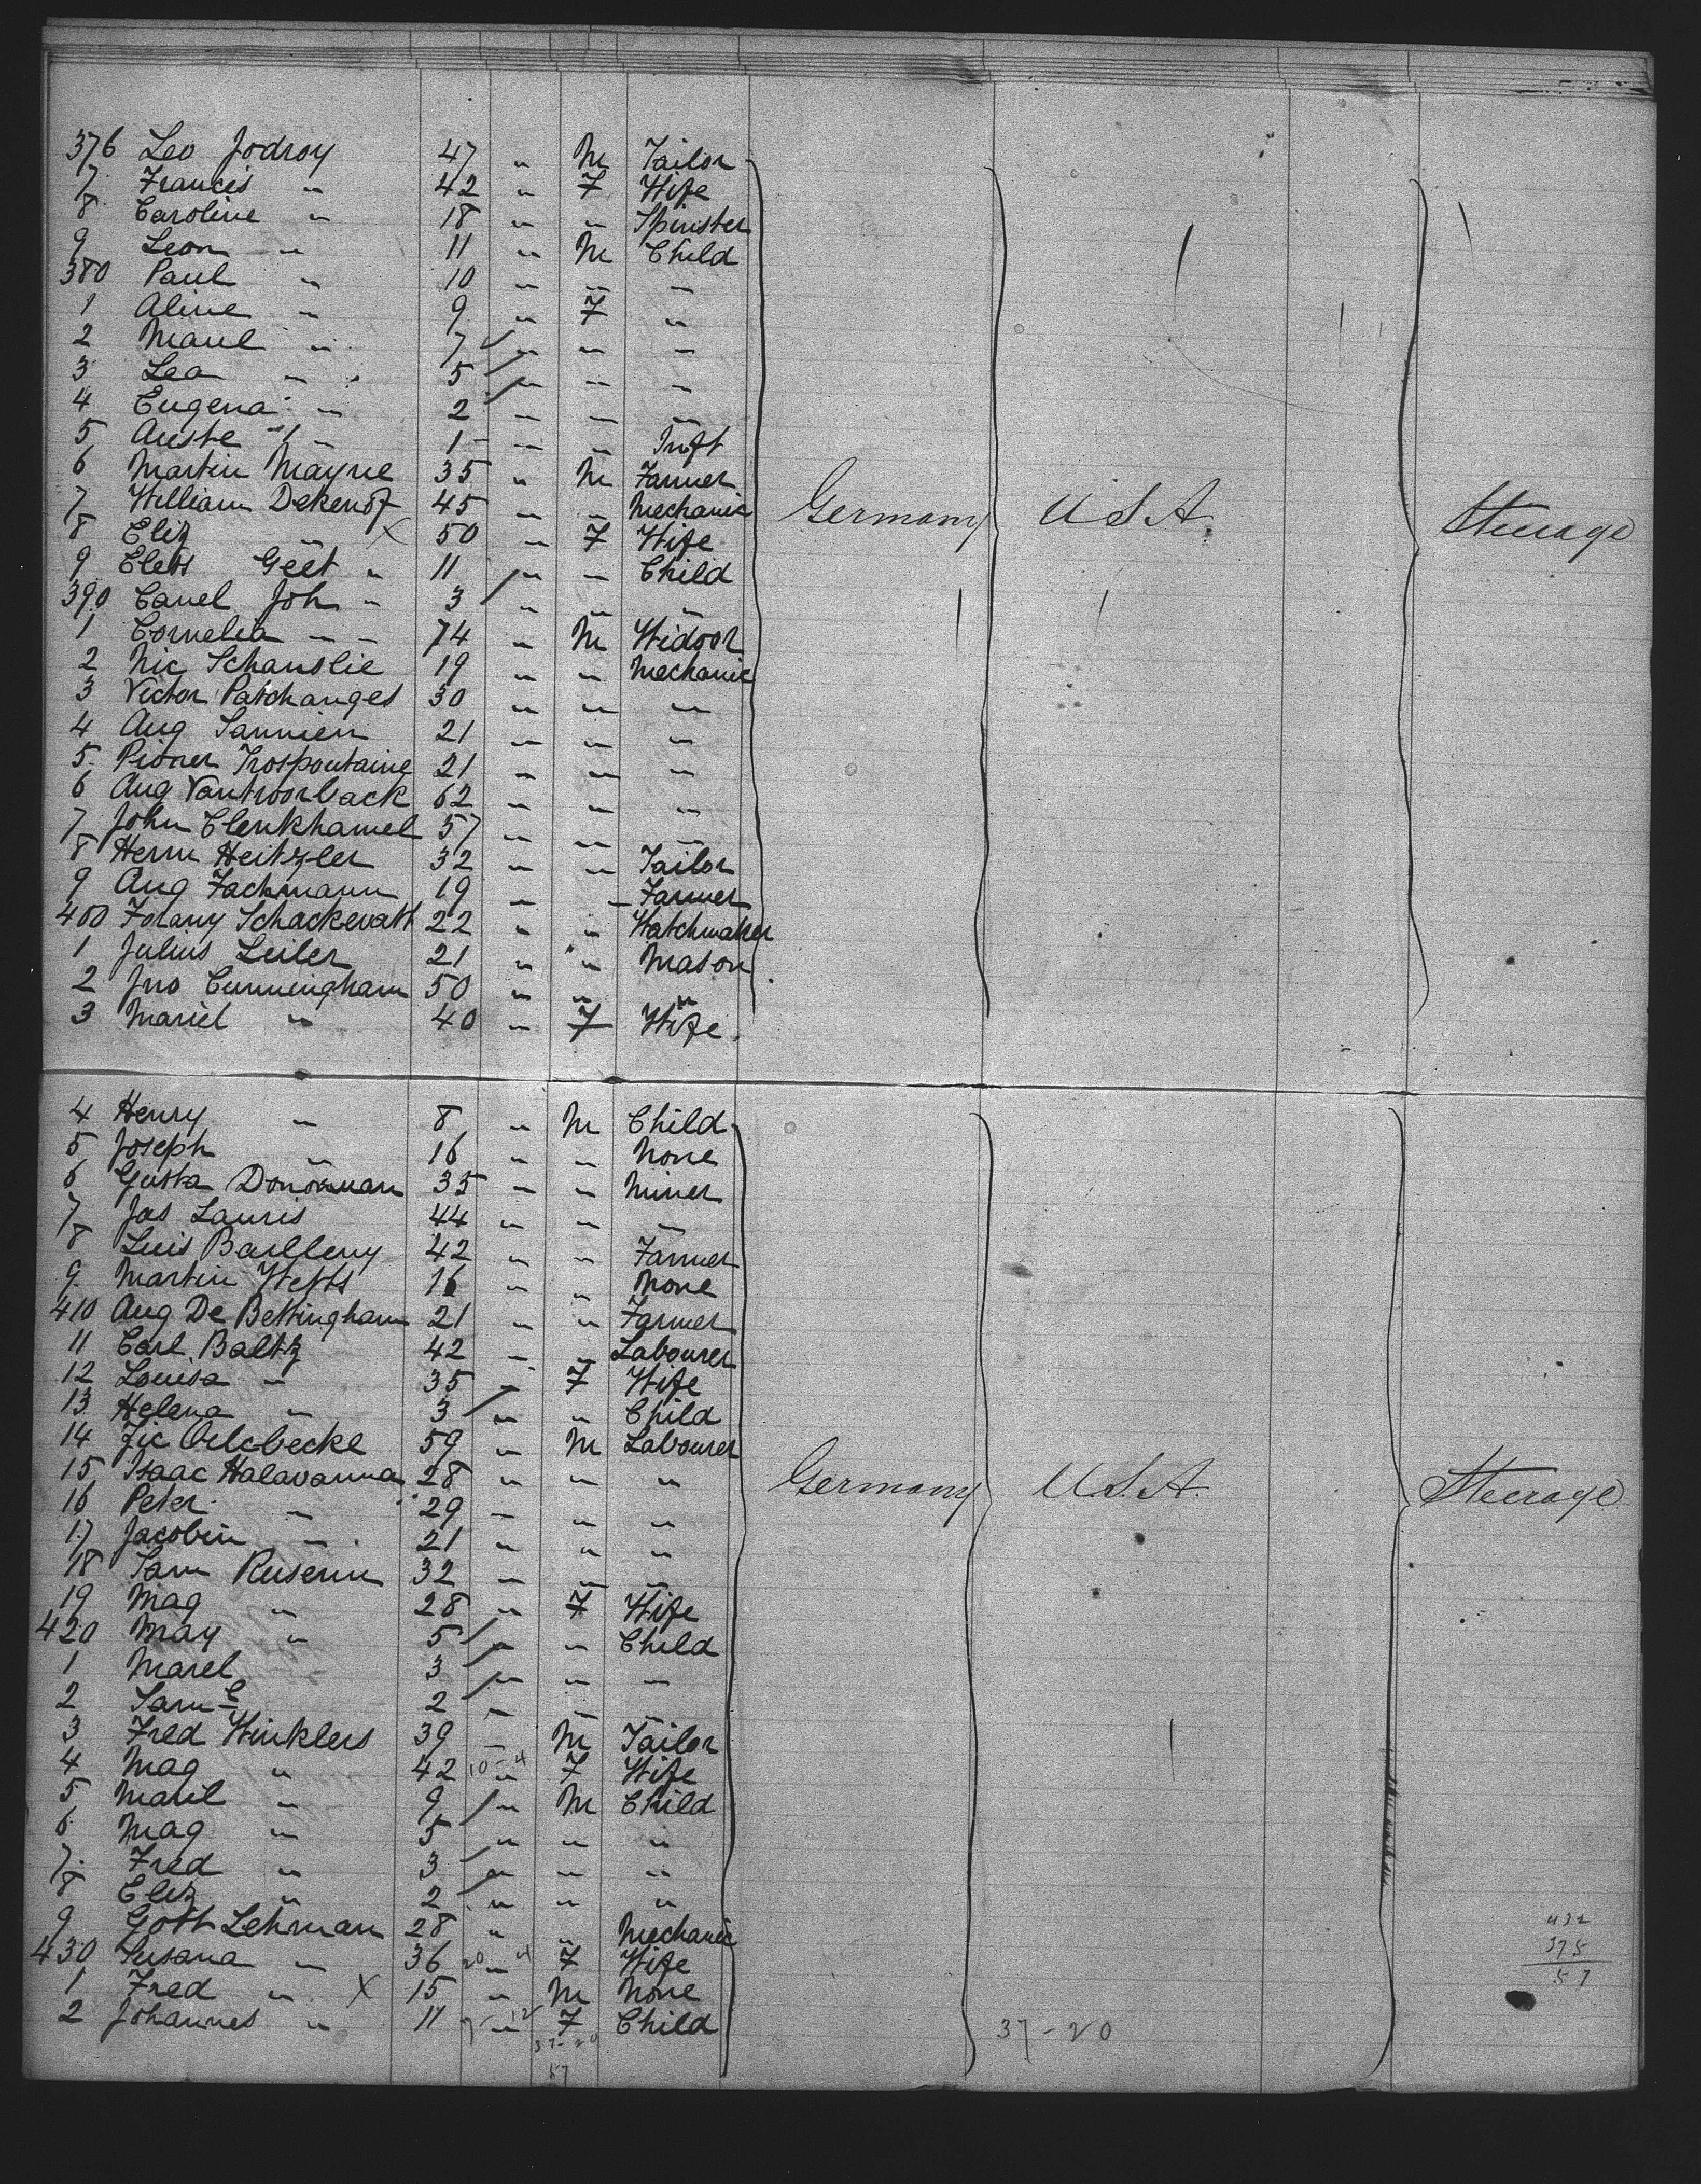 376 Leo Jodroy 47 " M Tailor
7 Francis " 42 " F Wife
8 Caroline " 18 " " Spinster
9 Leon " 11 " M Child
380 Paul " 10 " " "
1 Aline " 9 " F "
2 " 7 " " "
3 Lea " 5 " " "
4 Eugena " 2 " " "
5 " 1 " " Inft
6 Martin Mayne 35 " M Farmer
7 William Dekenof 45 " " Mechanic Germany U S A Steerage
8 Eliz " X 50 " F Wife
9 Geet " 11 " " Child
390 Joh " 3 " " "
1 Cornelia " " 74 " M
2 Nic Schanslie 19 " " Mechanic
3 Victor Patchanges 30 " " "
4 Aug Sannien 21 " " "
5 Trospoutaine 21 " " "
6 Aug Vantroorback 62 " " "
7 John Clenkhamel 57 " " "
8 Herm Heitzler 32 " " Tailor
9 Aug Fackmann 19 " " Farmer
400 Schackevath 22 " " Watchmaker
1 Julius Leiler 21 " " Mason
2 Jno Cunningham 50 " " "
3 Mariel " 40 " F Wife.
4 Henry " 8 " M Child
5 Joseph " 16 " " None
6 Gusta Donovan 35 " " Miner
7 Jas Lauris 44 " " "
8 Luis Bailleny 42 " " Farmer
9 Martin 16 " " None
410 Aug De Bettingham 21 " " Farmer
11 Carl Baltz 42 " " Labourer
12 Louisa " 35 " F Wife
13 Helena " 3 " " Child
14 59 " M Labourer
15 Isaac Halavanna 28 " " " Germany U.S.A. Steerage
16 Peter " 29 " " "
17 Jacobin " 21 " " "
18 Sam Rusenn 32 " " "
19 Mag " 28 " F Wife
420 May " 5 " " Child
1 Marel 3 " " "
2 Saml 2 " " "
3 Fred Winklers 39 " M Tailor
4 Mag " 42 10 - 4 " F Wife
5 " 9 " M Child
6 Mag " 5 " " "
7 Fred " 3 " " "
8 Eliz " 2 " " "
9 Gott Lehman 28 " " Mechanic 432
430 Susana " 36 20 " 4 F Wife 375
1 Fred " X 15 " M None 57
2 Johannes " 11 7 " 12 F Child
37-20 37-20
57